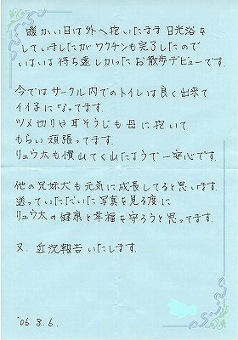 暖かい日は外へ抱いたまま日光浴を
していましたがワクチンも完了したので
いよいよ待ち遠しかったお散歩デビューです。
今ではサークル内でのトイレは良く出来て
イイ子になってます。
ツメ切りや耳そうじも母に抱いて
もらい頑張ってます。
リュウ太も慣れてくれたようで一安心です。
他の兄妹犬も元気に成長してると思います。
送っていただいた写真を見る度に
リュウ太の健康と幸福を守ろうと思ってます。
又、近況報告いたします。
'06 3.6.